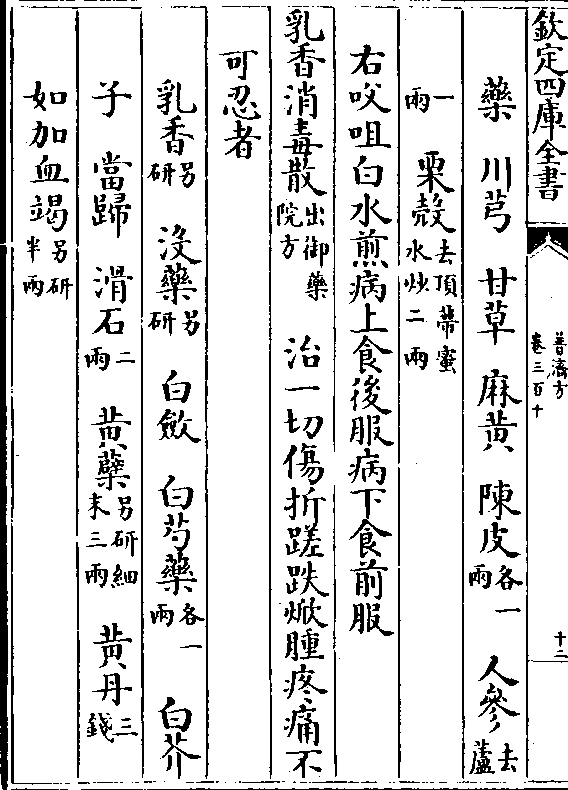 欽定四庫全書
普濟方
卷三百十
十二
藥 川芎 甘草 麻黄 陳皮各一兩 人參去蘆
一兩 栗殼去頂蒂蜜水炒二兩
右㕮咀白水煎病上食後服病下食前服
乳香消毒散出御藥院方 治一切傷折蹉跌焮腫疼痛不
可忍者
乳香另研 沒藥另研 白斂 白芍藥各一兩 白芥
子 當歸 滑石二兩 黄蘖另研細末三兩 黄丹三錢
如加血竭另研半兩